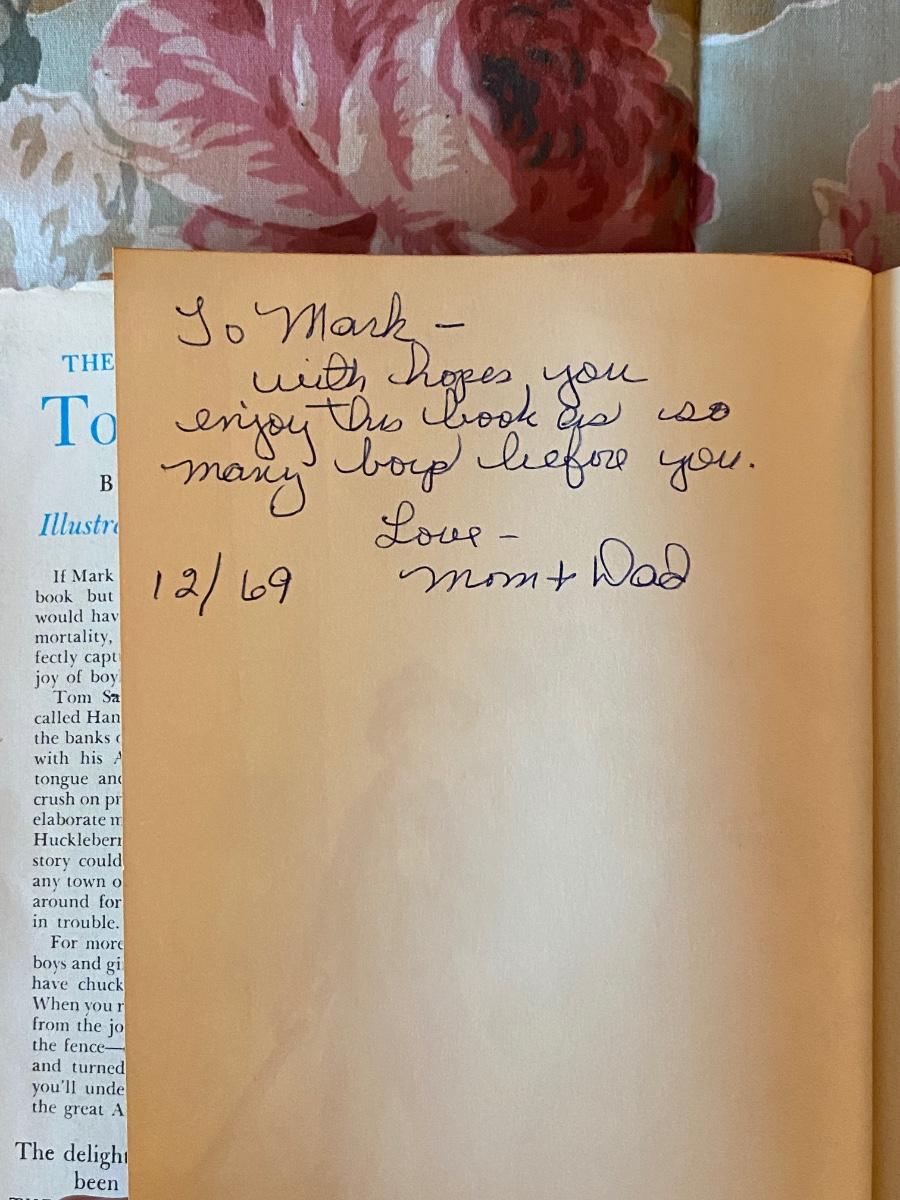 To Mark -
with hopes you
enjoy this book as so
many boys before you.
Love -
12/69 Mom + Dad
THE
To
B
Illustra
If Mark
book but
would hav
mortality,
fectly capt
joy of boy
Tom Sa
called Han
the banks
with his A
tongue and
crush on pr
elaborate m
Huckleberr
story could
any town o
around for
in trouble.
For more
boys and gi
have chuck
When you r
from the jo
the fence—
and turned
you'll unde
the great A
The delight
been